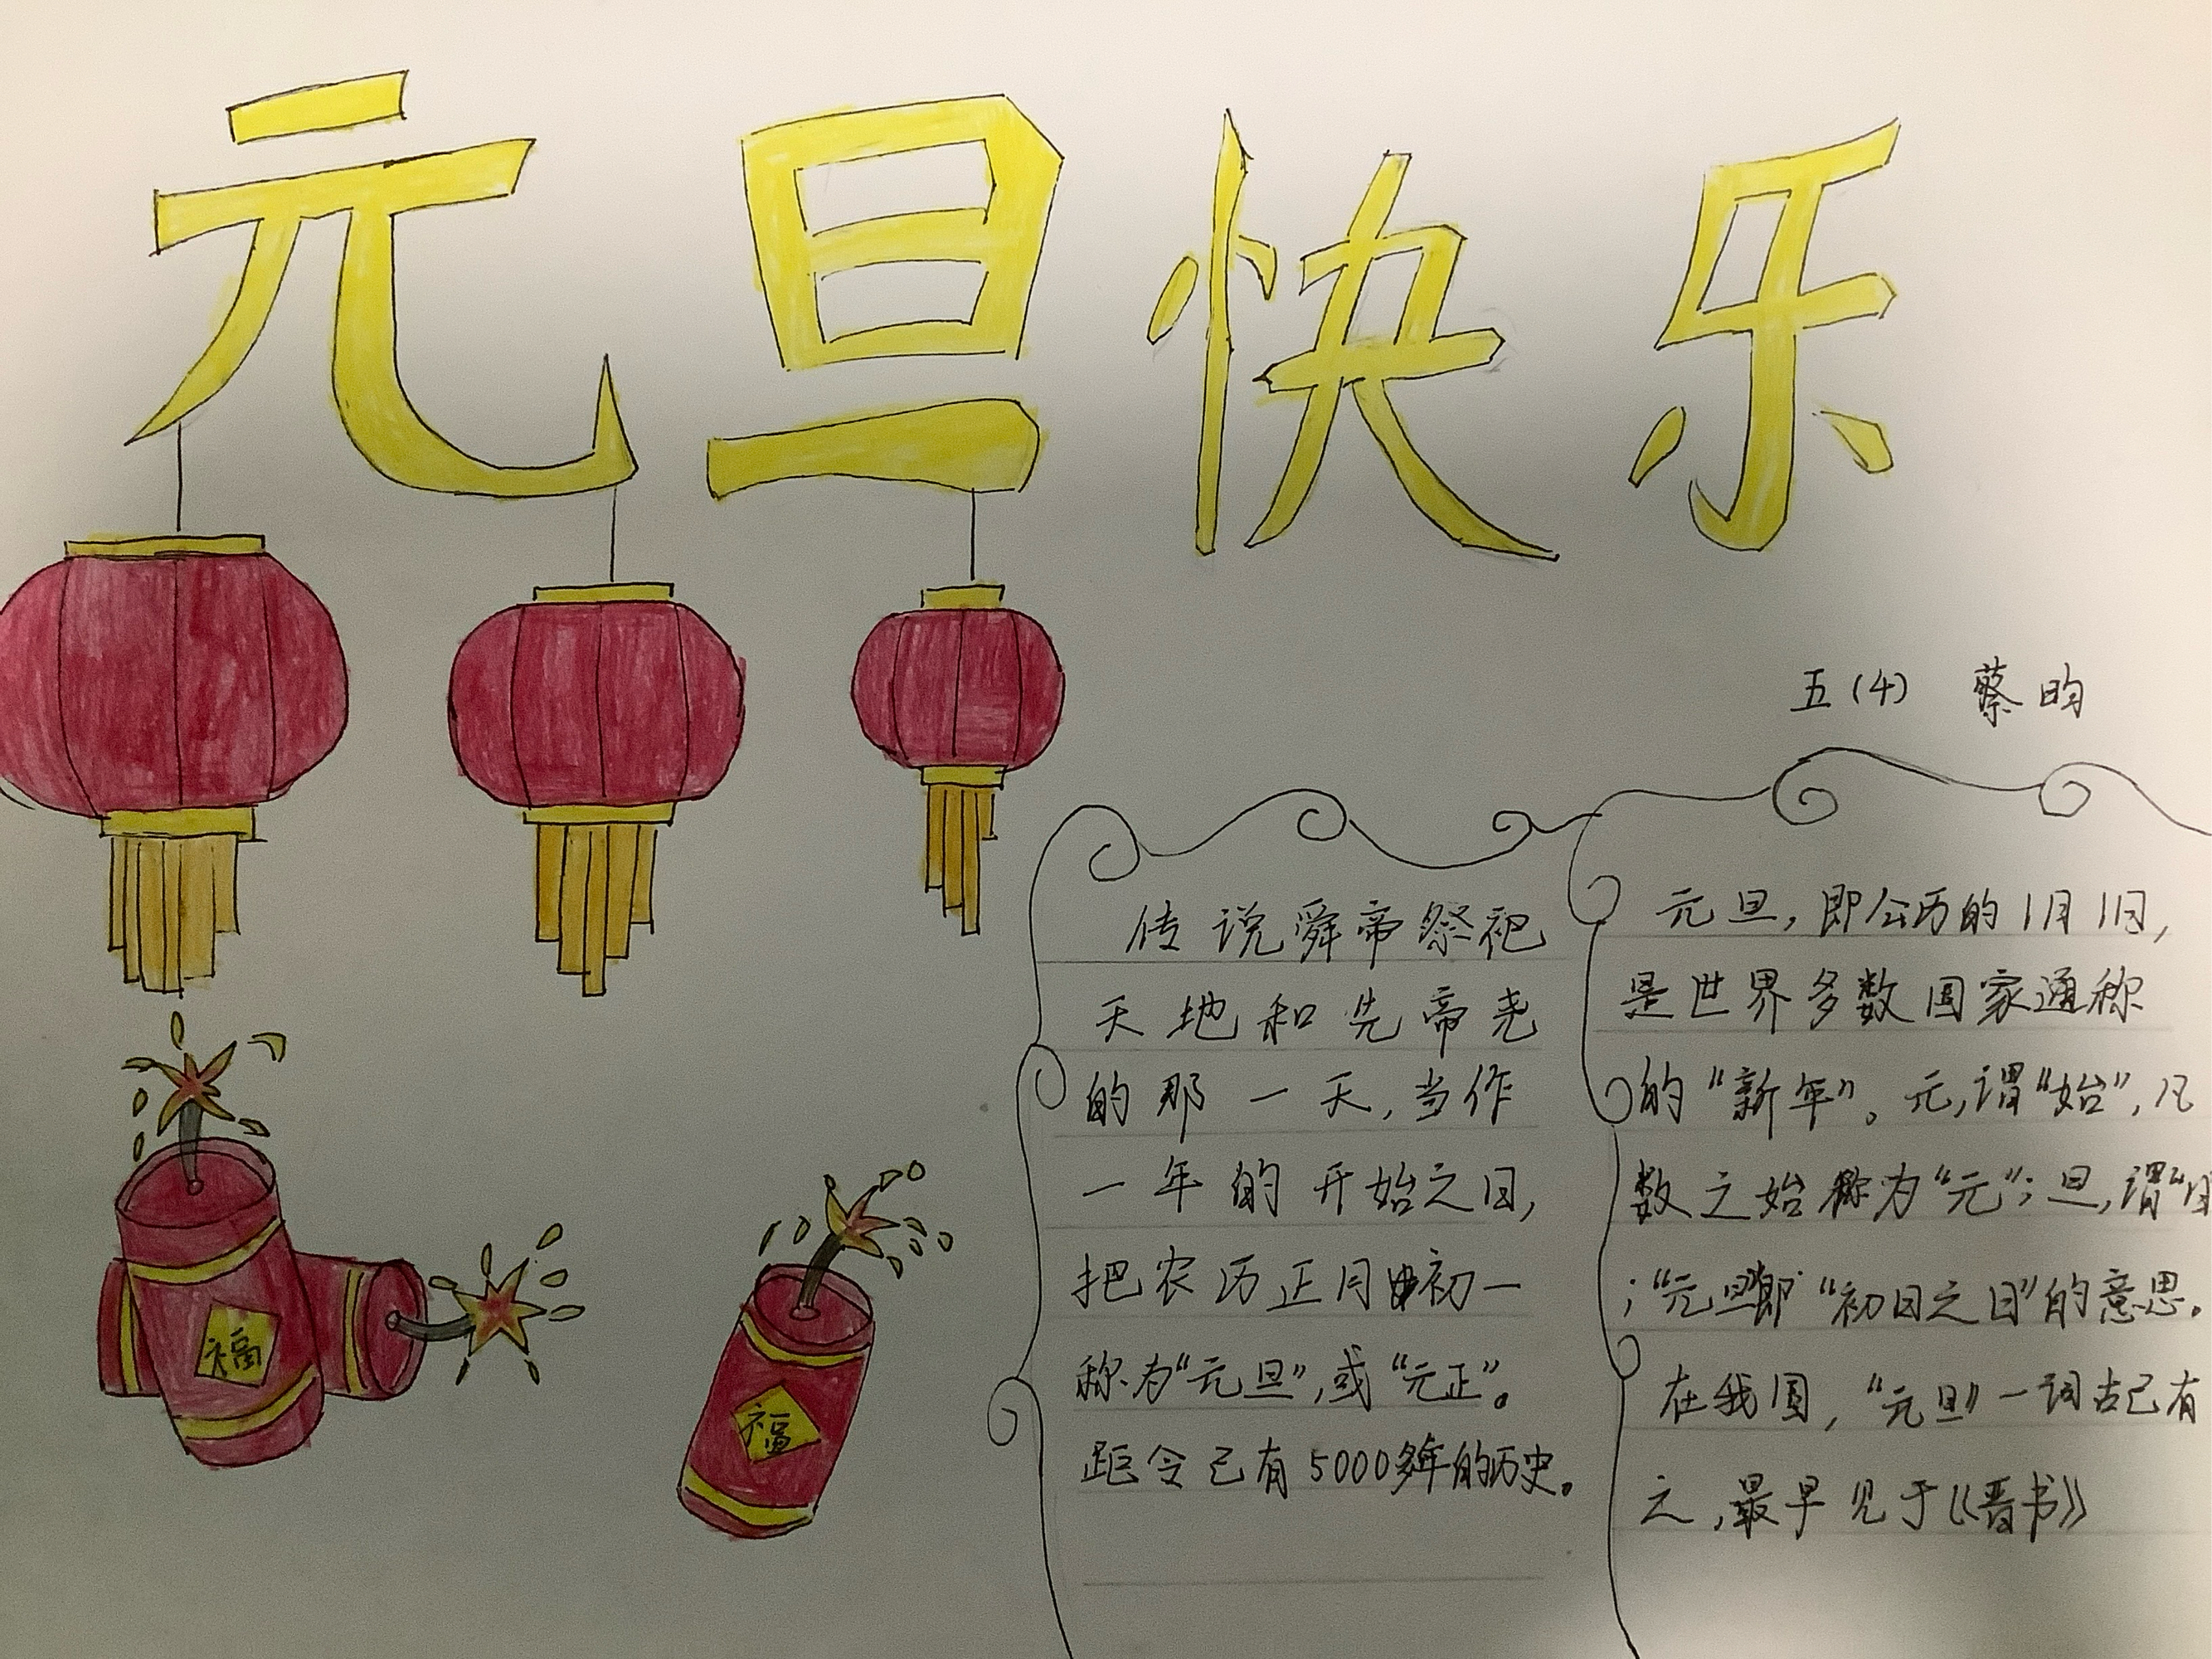 元旦快乐
五(4) 蔡昀
传说舜帝祭祀
天地和先帝尧
的那一天,当作
一年的开始之日,
把农历正月初一
称为“元旦”,或“元正”。
距令已有5000多年的历史。
元旦,即公历的1月1日,
是世界多数国家通称
的“新年”。元,谓“始”,凡
数之始称为“元”;旦,谓“日
;“元旦即“初日之日”的意思。
在我国,“元旦”一词古已有
之,最早见于《晋书》
福
福